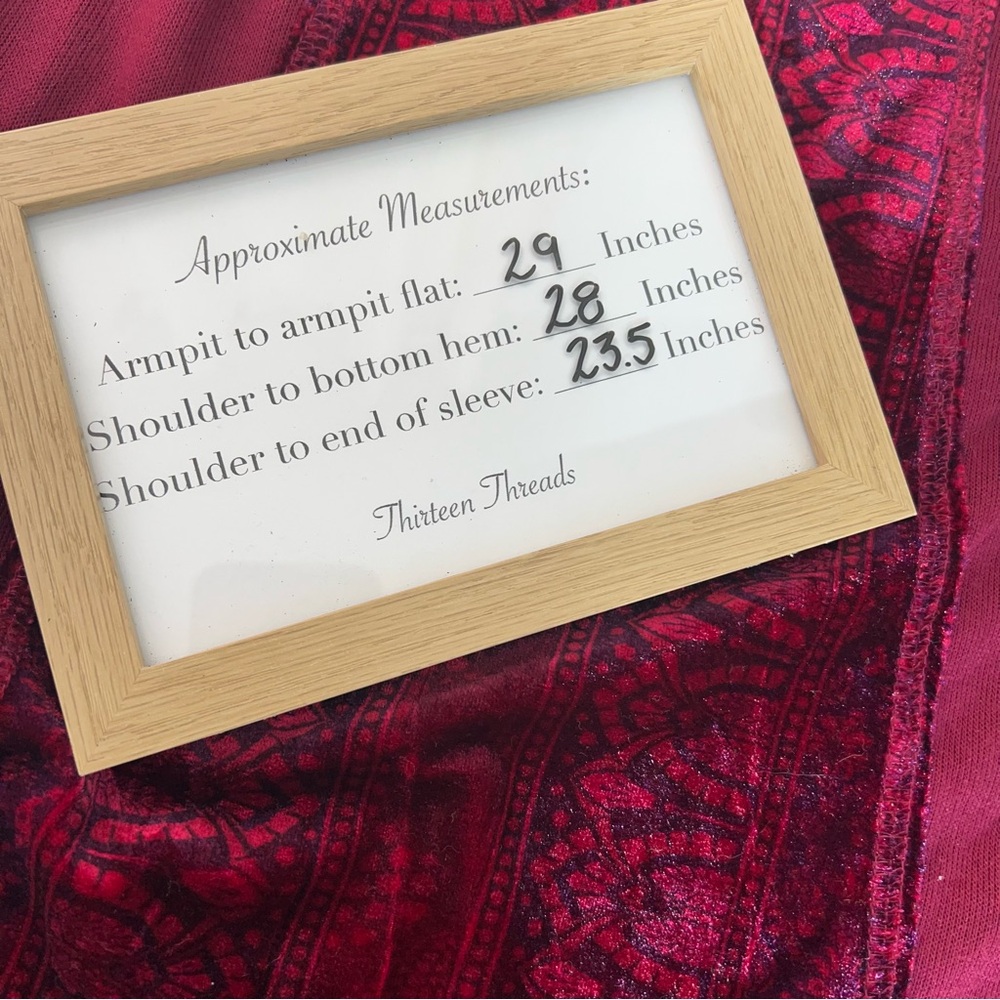 Approximate Measurements:
Armpit to armpit flat: 29 Inches
Shoulder to bottom hem: 28 Inches
Shoulder to end of sleeve: 23.5 Inches
Thirteen Threads